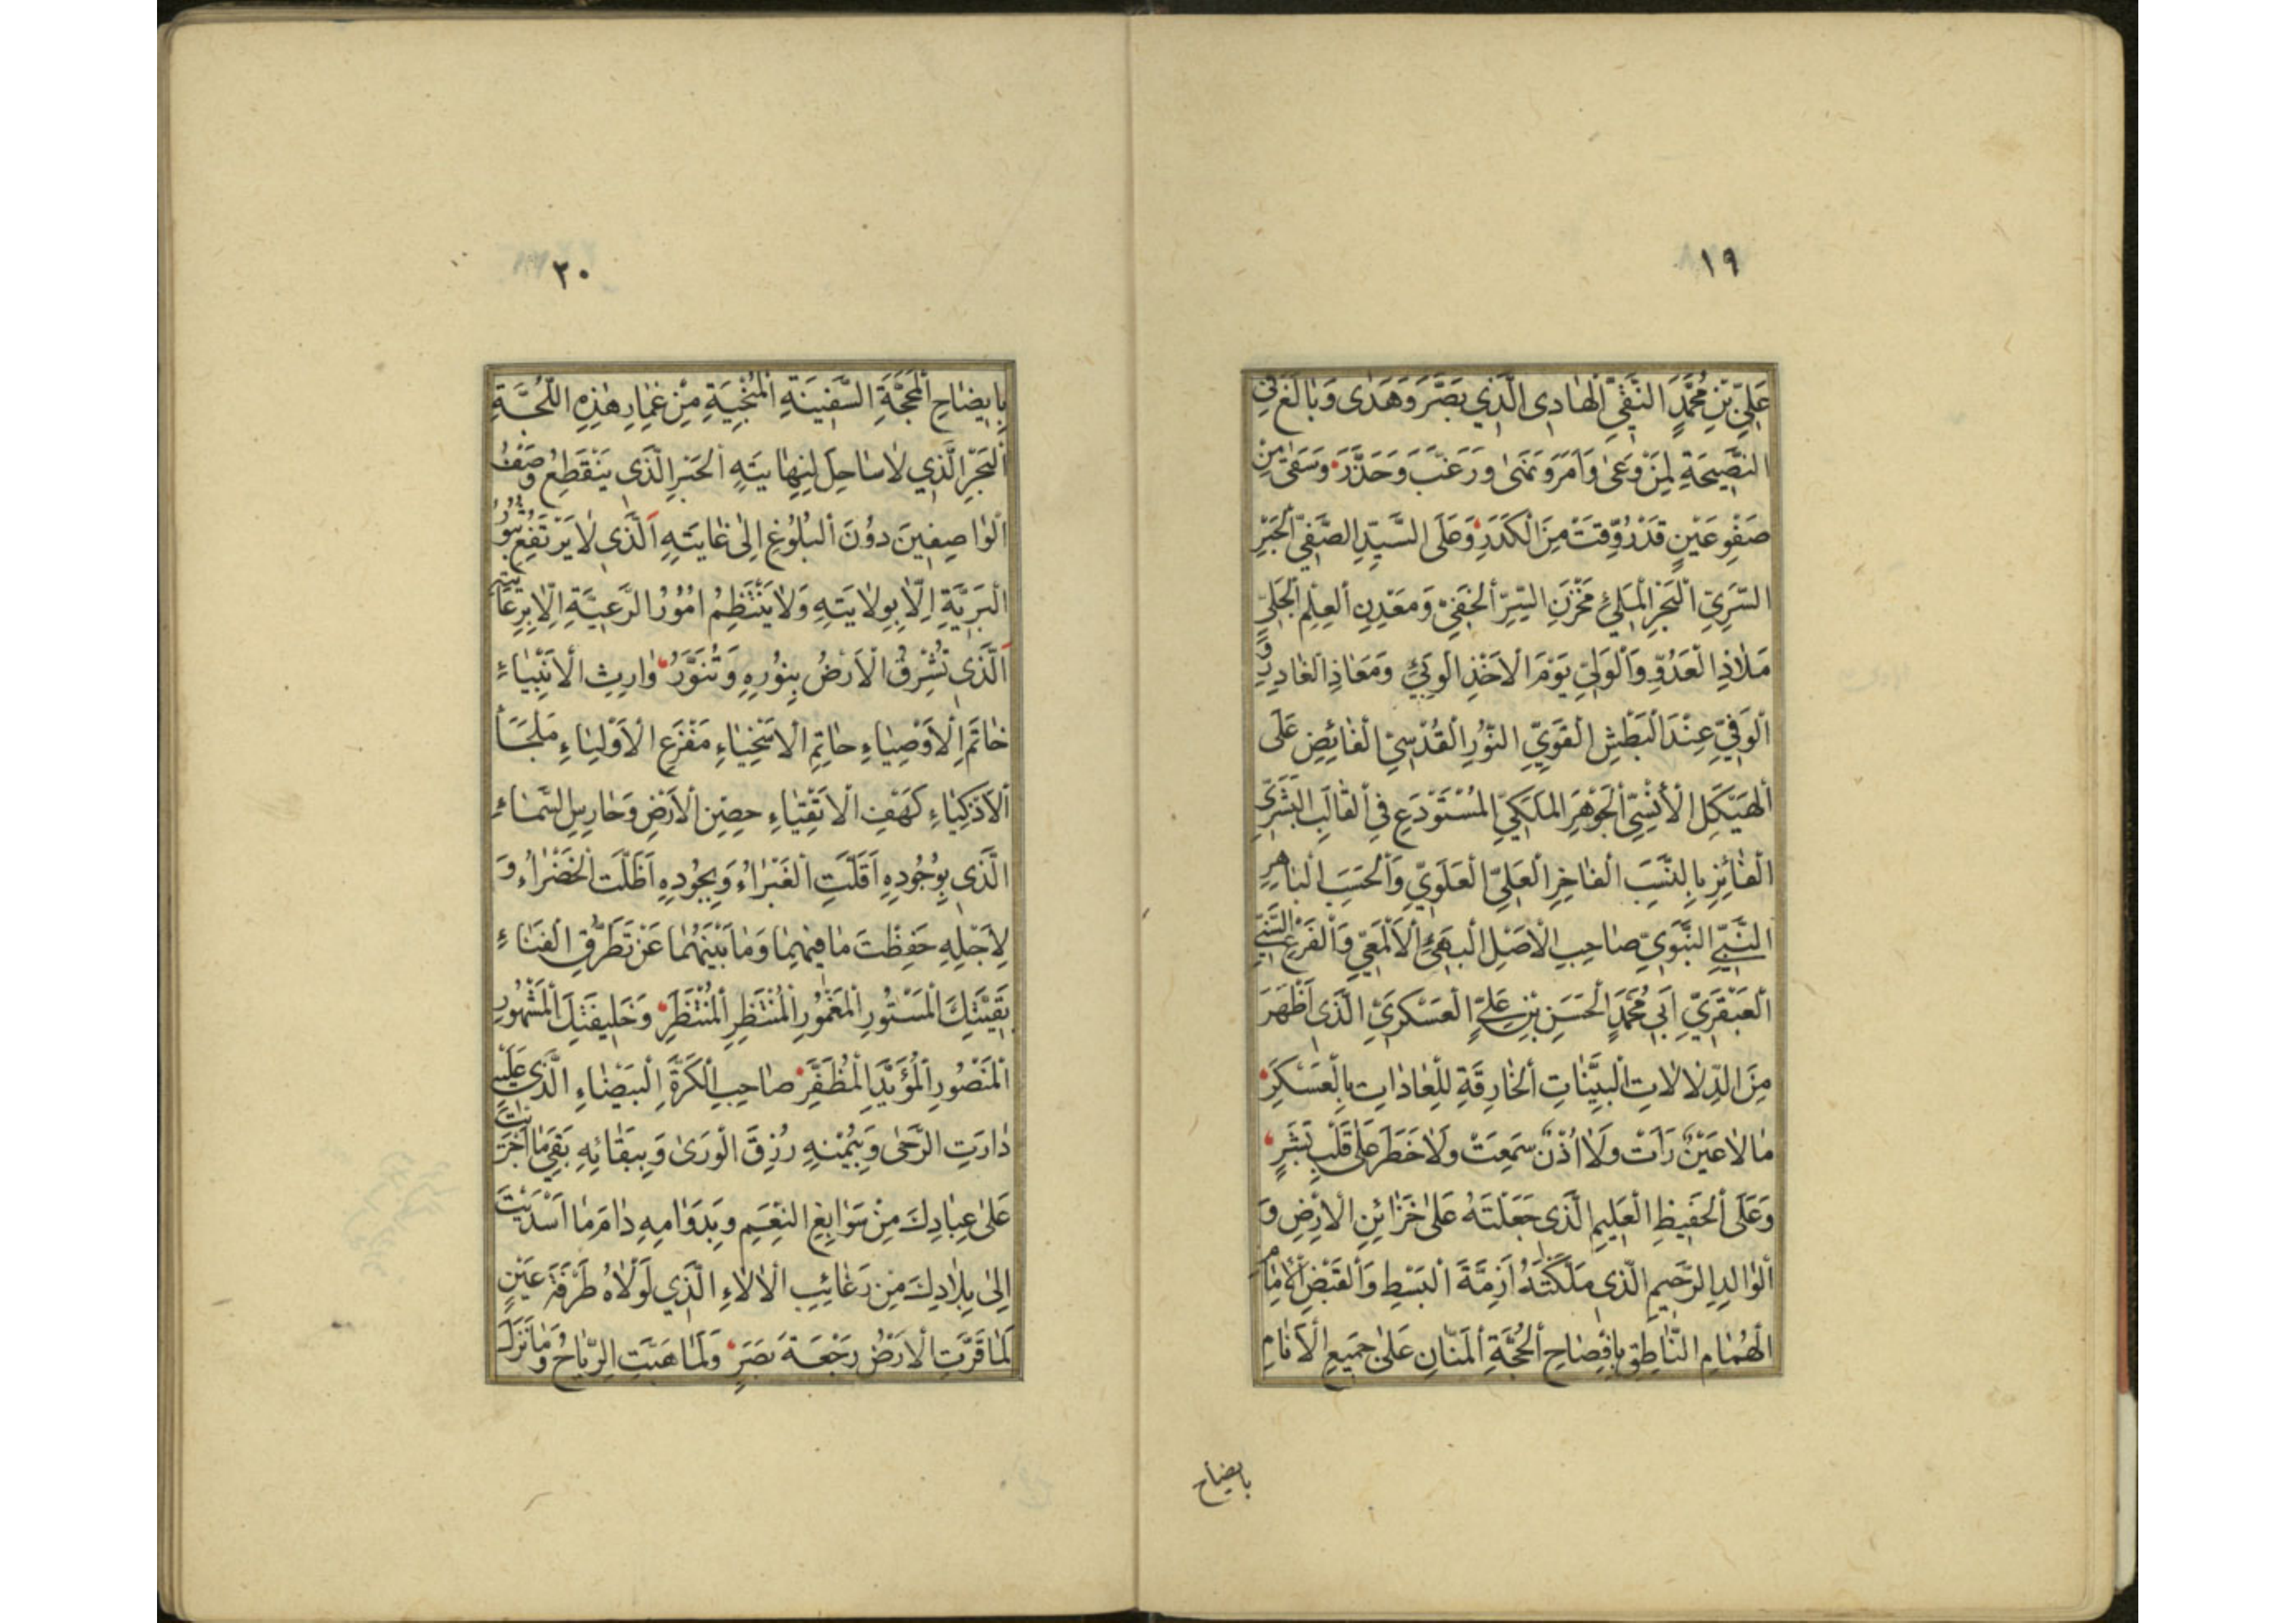 ١٩
عَلِيِّ بْنِ مُحَمَّدٍ النَّقِيِّ الْهَادِي الَّذِي بَصَّرَ وَهَدَى وَبَالَغَ فِي
النَّصِيحَةِ لِمَنْ وَعَى وَأَمَرَ وَنَهَى وَرَغَّبَ وَحَذَّرَ وَسَقَى مِنْ
صَفْوِ عَيْنٍ قَدْ رُوِّقَتْ مِنَ الْكَدَرِ وَعَلَى السَّيِّدِ الصَّفِيِّ الْحَبْرِ
السَّرِيِّ الْبَحْرِ الْمَلِيِّ مَخْزَنِ السِّرِّ الْخَفِيِّ وَمَعْدِنِ الْعِلْمِ الْجَلِيِّ
مَلَاذِ الْعَدُوِّ وَالْوَلِيِّ يَوْمَ الْأَخْذِ الْوَبِيِّ وَمَعَاذِ الْغَادِرِ وَ
الْوَفِيِّ عِنْدَ الْبَطْشِ الْقَوِيِّ النُّورِ الْقُدْسِيِّ الْفَائِضِ عَلَى
الْهَيْكَلِ الْأُنْسِيِّ الْجَوْهَرِ الْمَلَكِيِّ الْمُسْتَوْدَعِ فِي الْقَالَبِ الْبَشَرِيِّ
الْفَائِزِ بِالنَّسَبِ الْفَاخِرِ الْعَلِيِّ الْعَلَوِيِّ وَالْحَسَبِ الْبَاهِرِ
النَّبِيِّ النَّبَوِيِّ صَاحِبِ الْأَصْلِ الْبَهِيِّ الْأَلْمَعِيِّ وَالْفَرْعِ السَّنِيِّ
الْعَبْقَرِيِّ أَبِي مُحَمَّدٍ الْحَسَنِ بْنِ عَلِيٍّ الْعَسْكَرِيِّ الَّذِي أَظْهَرَ
مِنَ الدَّلَالَاتِ الْبَيِّنَاتِ الْخَارِقَةِ لِلْعَادَاتِ بِالْعَسْكَرِ
مَا لَا عَيْنٌ رَأَتْ وَلَا أُذُنٌ سَمِعَتْ وَلَا خَطَرَ عَلَى قَلْبِ بَشَرٍ
وَعَلَى الْحَفِيظِ الْعَلِيمِ الَّذِي جَعَلْتَهُ عَلَى خَزَائِنِ الْأَرْضِ وَ
الْوَالِدِ الرَّحِيمِ الَّذِي مَلَّكْتَهُ أَزِمَّةَ الْبَسْطِ وَالْقَبْضِ الْإِمَامِ
الْهُمَامِ النَّاطِقِ بِإِفْصَاحِ الْحُجَّةِ الْمَنَّانِ عَلَى جَمِيعِ الْأَنَامِ
بايضاح
٢٠
بِإِيضَاحِ الْمَحَجَّةِ السَّفِينَةِ الْمُنْجِيَةِ مِنْ غِمَارِ هَذِهِ اللُّجَّةِ
الْبَحْرِ الَّذِي لَا سَاحِلَ لِنِهَايَتِهِ الْحَبْرِ الَّذِي يَنْقَطِعُ وَصْفُ
الْوَاصِفِينَ دُونَ الْبُلُوغِ إِلَى غَايَتِهِ الَّذِي لَا يَرْتَفِعُ ثُبُورُ
الْبَرِيَّةِ إِلَّا بِوِلَايَتِهِ وَلَا يَنْتَظِمُ أُمُورُ الرَّعِيَّةِ إِلَّا بِرِعَايَتِهِ
الَّذِي تُشْرِقُ الْأَرْضُ بِنُورِهِ وَتُنَوَّرُ وَارِثِ الْأَنْبِيَاءِ
خَاتَمِ الْأَوْصِيَاءِ حَاتِمِ الْأَسْخِيَاءِ مَفْزَعِ الْأَوْلِيَاءِ مَلْجَأِ
الْأَذْكِيَاءِ كَهْفِ الْأَتْقِيَاءِ حِصْنِ الْأَرْضِ وَحَارِسِ السَّمَاءِ
الَّذِي بِوُجُودِهِ أَقَلَّتِ الْغَبْرَاءُ وَبِجُودِهِ أَظَلَّتِ الْخَضْرَاءُ وَ
لِأَجْلِهِ حَفِظْتَ مَا فِيهِمَا وَمَا بَيْنَهُمَا عَنْ تَطَرُّقِ الْفَنَاءِ
بَقِيَّتِكَ الْمَسْتُورِ الْمَغْمُورِ الْمُنْتَظِرِ الْمُنْتَظَرِ وَخَلِيفَتِكَ الْمَشْهُورِ
الْمَنْصُورِ الْمُؤَيَّدِ الْمُظَفَّرِ صَاحِبِ الْكَرَّةِ الْبَيْضَاءِ الَّذِي عَلَيْهِ
دَارَتِ الرَّحَى وَبِيُمْنِهِ رُزِقَ الْوَرَى وَبِبَقَائِهِ بَقِيَ مَا أَجْرَيْتَ
عَلَى عِبَادِكَ مِنْ سَوَابِغِ النِّعَمِ وَبِدَوَامِهِ دَامَ مَا أَسْدَيْتَ
إِلَى بِلَادِكَ مِنْ رَغَائِبِ الْآلَاءِ الَّذِي لَوْلَاهُ طَرْفَةَ عَيْنٍ
لَمَا قَرَّتِ الْأَرْضُ رَجْعَةَ بَصَرٍ وَلَمَا هَبَّتِ الرِّيَاحُ وَمَا نَزَلَ